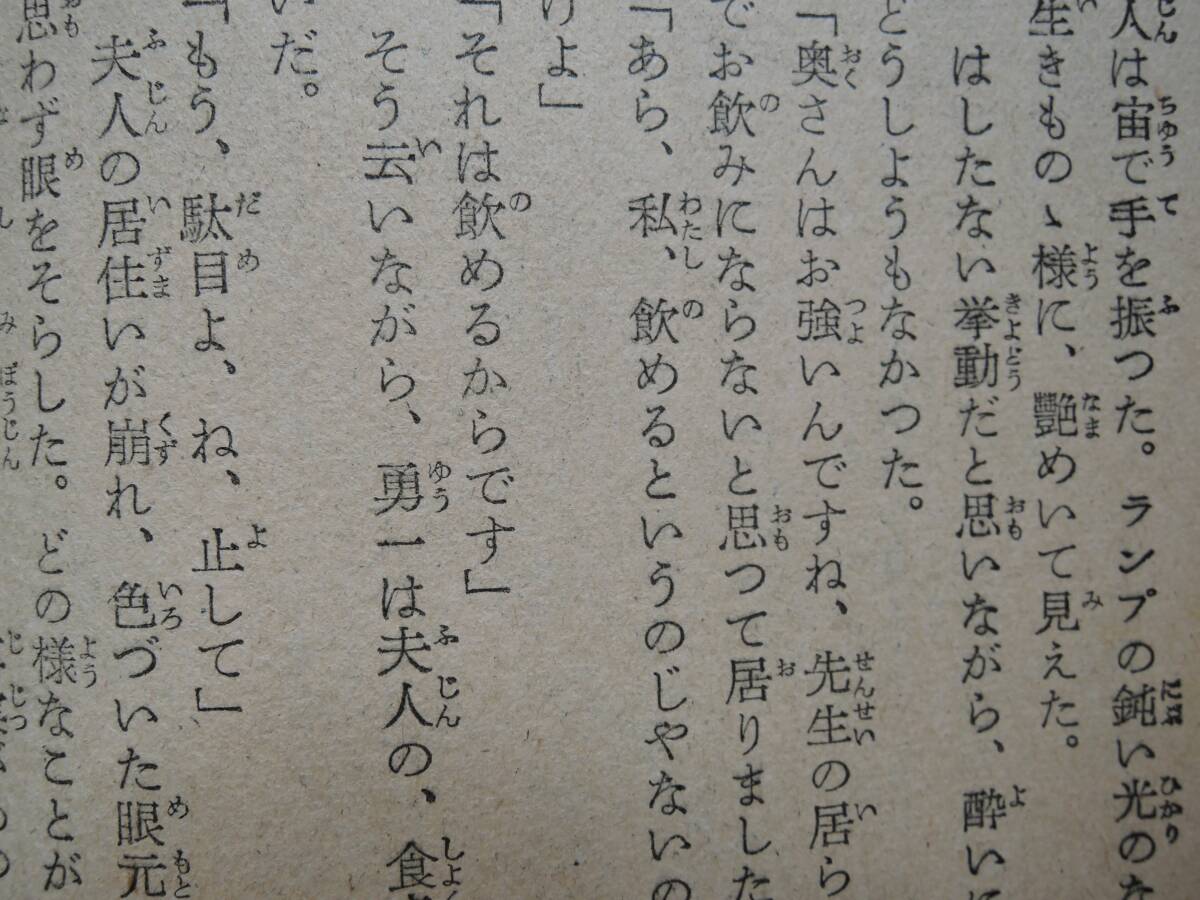 人は宙で手を振つた。ランプの鈍い光のな
生きものゝ様に、艶めいて見えた。
はしたない挙動だと思いながら、酔いに
どうしようもなかつた。
「奥さんはお強いんですね、先生の居ら
でお飲みにならないと思つて居りました
「あら、私、飲めるというのじやないの
けよ」
「それは飲めるからです」
そう云いながら、勇一は夫人の、食
いだ。
「もう、駄目よ、ね、止して」
夫人の居住いが崩れ、色づいた眼元
思わず眼をそらした。どの様なことが